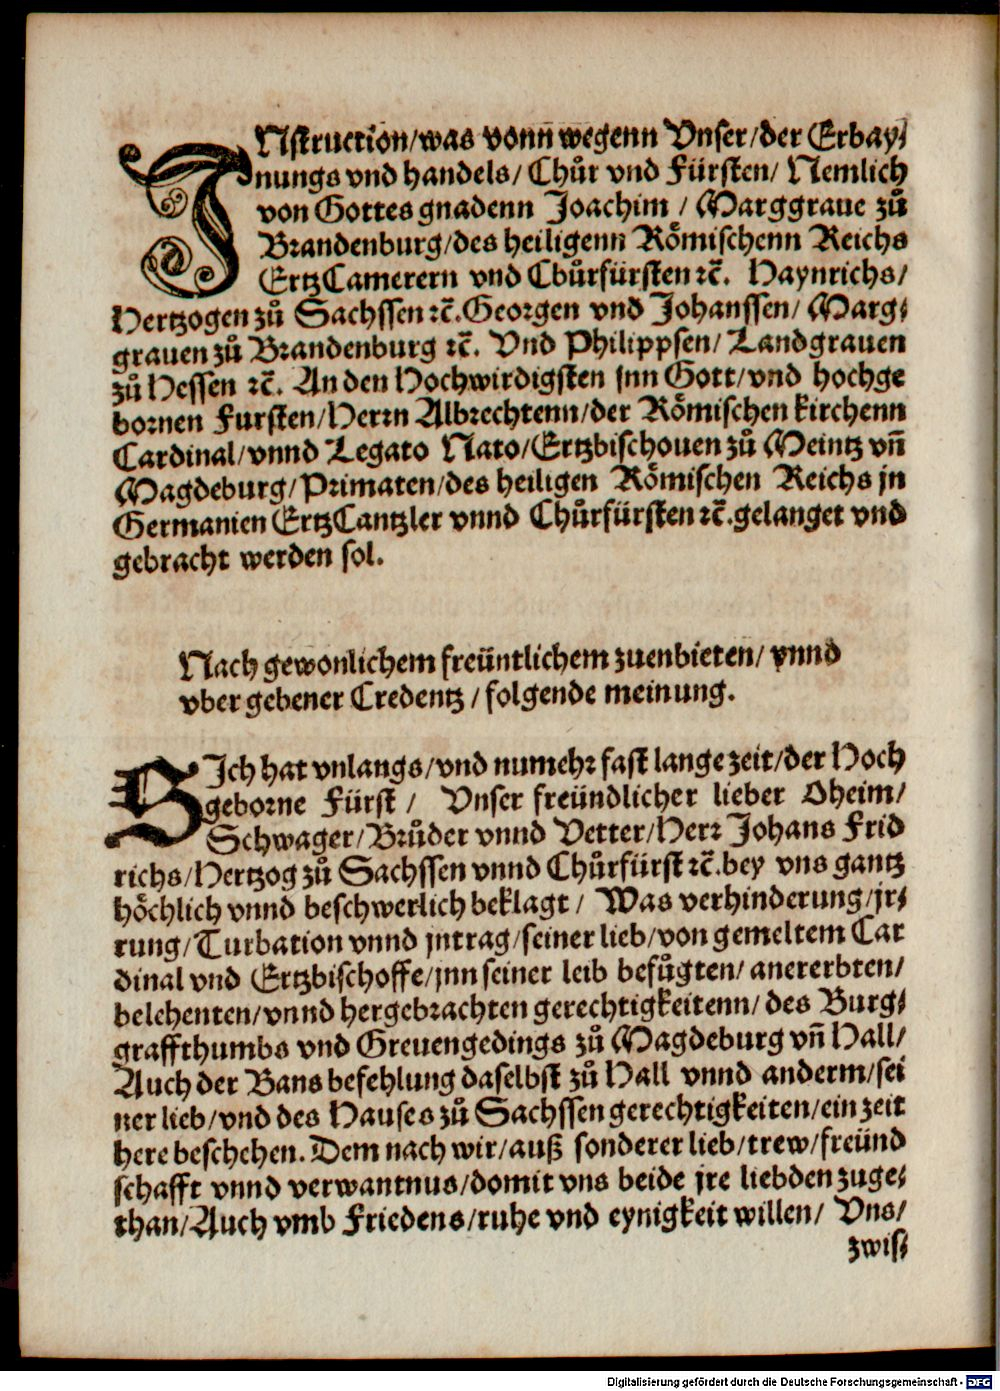 INstruction/was vonn wegenn Vnser/der Erbay⸗
nungs vnd handels/ Chůr vnd Fürsten/ Nemlich
von Gottes gnadenn Joachim / Marggraue zů
Brandenburg/des heiligenn Römischenn Reichs
ErtzCamerern vnd Chůrfürsten ꝛc̃. Haynrichs/
Hertzogen zů Sachssen ꝛc̃. Georgen vnd Johanssen/ Marg⸗
grauen zů Brandenburg ꝛc̃. Vnd Philippsen/ Landgrauen
zů Hessen ꝛc̃. An den Hochwirdigsten jnn Gott/vnd hochge
bornen Fursten/Herrn Albrechtenn/der Römischen kirchenn
Cardinal/vnnd Legato Nato/Ertzbischouen zů Meintz vñ
Magdeburg/Primaten/des heiligen Römischen Reichs jn
Germanien ErtzCantzler vnnd Chůrfürsten ꝛc̃. gelanget vnd
gebracht werden sol.
Nach gewonlichem freüntlichem zuenbieten/ vnnd
vber gebener Credentz / folgende meinung.
SIch hat vnlangs/vnd numehr fast lange zeit/der Hoch
geborne Fürst / Vnser freündlicher lieber Oheim/
Schwager/Brůder vnnd Vetter/Herr Johans Frid
richs/Hertzog zů Sachssen vnnd Chůrfürst ꝛc̃. bey vns gantz
höchlich vnnd beschwerlich beklagt / Was verhinderung/jr⸗
rung/Turbation vnnd jntrag/seiner lieb/von gemeltem Car
dinal vnd Ertzbischoffe/jnn seiner leib befůgten/ anererbten/
belehenten/vnnd hergebrachten gerechtigkeitenn/ des Burg⸗
graffthumbs vnd Greuengedings zů Magdeburg vñ Hall/
Auch der Bans befehlung daselbst zů Hall vnnd anderm/sei
ner lieb/vnd des Hauses zů Sachssen gerechtigkeiten/ein zeit
here beschehen. Dem nach wir/auß sonderer lieb/trew/freünd
schafft vnnd verwantnus/domit vns beide jre liebden zuge⸗
than/Auch vmb Friedens/ruhe vnd eynigkeit willen/ Vns/
zwis⸗
Digitalisierung gefördert durch die Deutsche Forschungsgemeinschaft - DFG